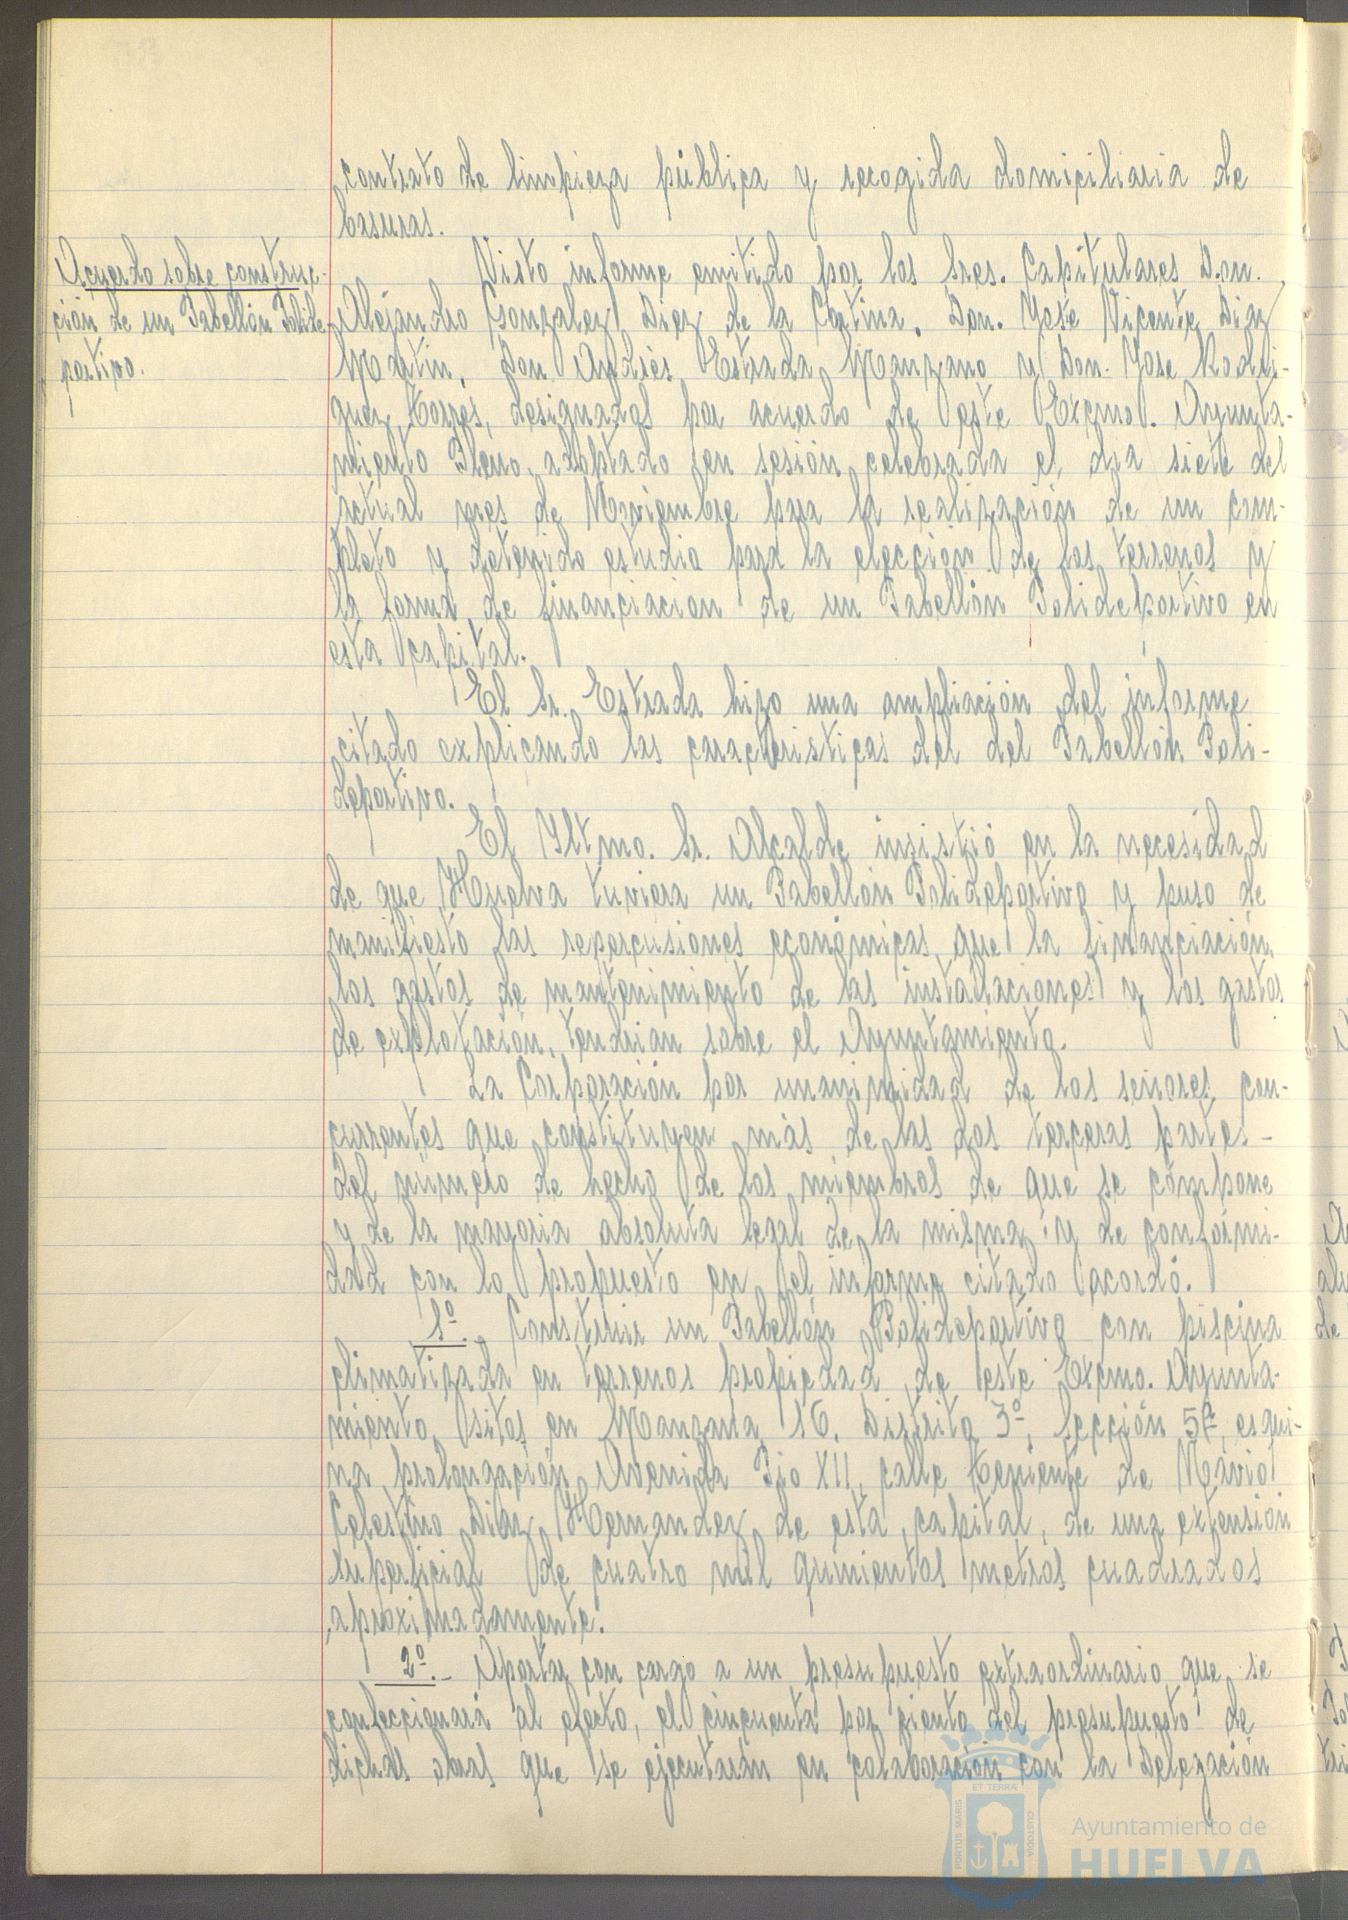 contrato de limpieza pública y recogida domiciliaria de
basuras.
Acuerdo sobre construc-
ción de un Pabellón Polide
portivo.
Visto informe emitido por los Sres. Capitulares Don.
Alejandro Gonzalez Diez de la Cortina, Don. José Vicente Diaz
Martin, Don Andrés Estrada Manzano y Don. Jose Rodri-
guez Torres, designados por acuerdo de este Excmo. Ayunta-
miento Pleno, adoptado en sesión celebrada el dia siete del
actual mes de Noviembre para la realización de un com-
pleto y detenido estudio para la elección de los terrenos y
la forma de financiacion de un Pabellón Polideportivo en
esta capital.
El Sr. Estrada hizo una ampliación del informe
citado explicando las caracteristicas del del Pabellón Poli-
deportivo.
El Iltmo. Sr. Alcalde insistió en la necesidad
de que Huelva tuviera un Pabellón Polideportivo y puso de
manifiesto las repercusiones económicas que la financiación,
los gastos de mantenimiento de las instalaciones y los gastos
de explotación, tendrian sobre el Ayuntamiento.
La Corporación por unanimidad de los señores con-
currentes que constituyen más de las dos terceras partes-
del número de hecho de los miembros de que se compone
y de la mayoria absoluta legal de la misma y de conformi-
dad con lo propuesto en el informe citado acordó.
1º.- Construir un Pabellón Polideportivo con piscina
climatizada en terrenos propiedad de este Excmo. Ayunta-
miento sitos en Manzana 16, Distrito 3º, Sección 5ª, esqui-
na prolongación Avenida Pio XII, calle Teniente de Navio
Celestino Diaz Hernandez de esta capital, de una extensión
superficial de cuatro mil quinientos metros cuadrados
aproximadamente.
2º.- Aportar con cargo a un presupuesto extraordinario que se
confeccionará al efecto, el cincuenta por ciento del presupuesto de
dichas obras que se ejecutarán en colaboración con la Delegación
ET TERRÆ
PORTUS MARIS
CUSTODIA
Ayuntamiento de
HUELVA